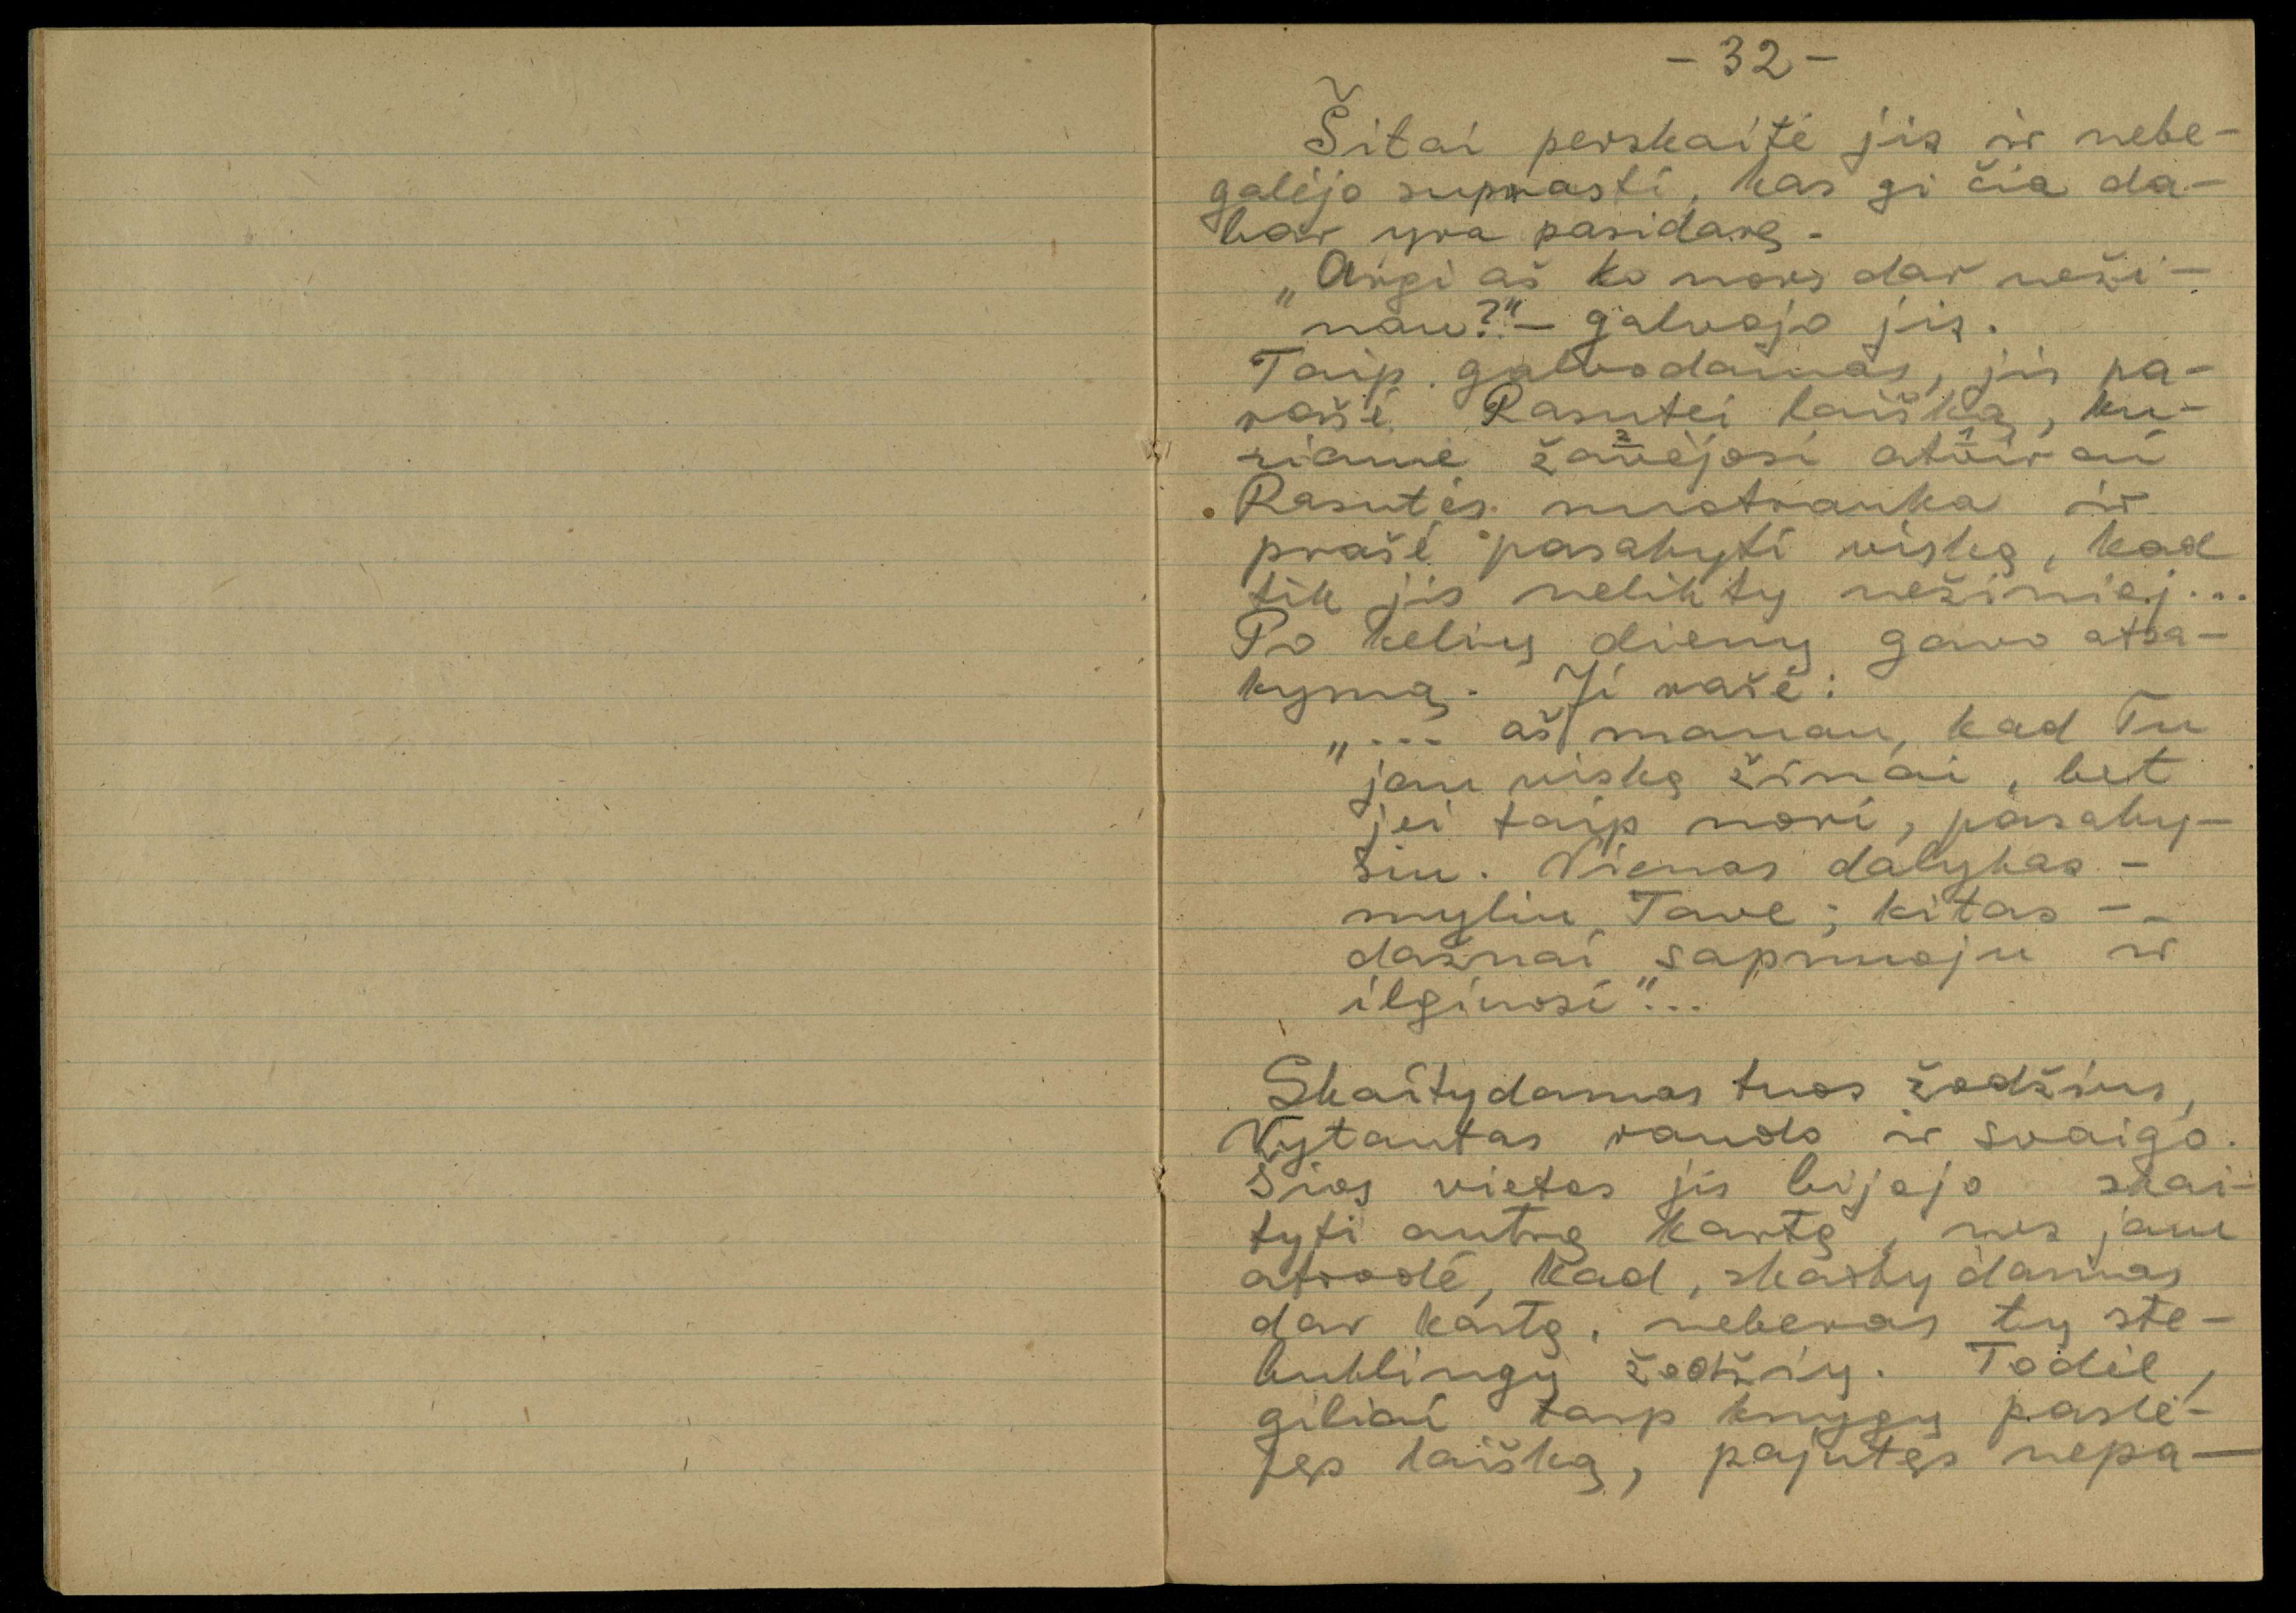 - 32 -
Šitai perskaitė jis ir nebe-
galėjo suprasti, kas gi čia da-
bar yra pasidarę.
„Argi aš ko nors dar neži-
nau?" - galvojo jis.
Taip galvodamas, jis pa-
rašė Rasutei laišką, ku-
riame žavėjosi 2 atvirai 1
Rasutės nuotrauka ir
prašė pasakyti viską, kad
tik jis neliktų nežinioj...
Po kelių dienų gavo atsa-
kymą. Ji rašė:
„... aš manau, kad Tu
jau viską žinai, bet
jei taip nori, pasaky-
siu. Vienas dalykas -
myliu Tave; kitas -
dažnai sapnuoju ir
ilgiuosi"...
Skaitydamas tuos žodžius,
Vytautas raudo ir svaigo.
Šios vietos jis bijojo skai-
tyti antrą kartą, nes jam
atrodė, kad, skaitydamas
dar kartą, neberas tų ste-
buklingų žodžių. Todėl,
giliai tarp knygų paslė-
pęs laišką, pajutęs nepa-